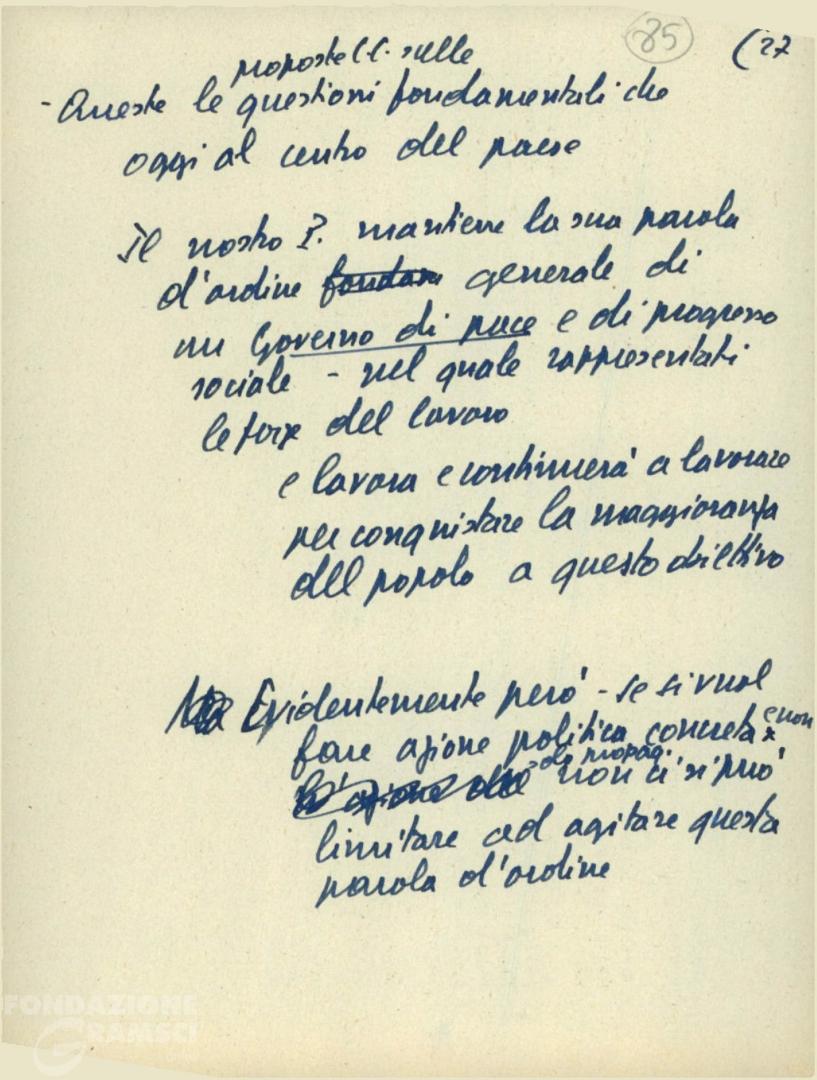 85
(27
proposte C.C. sulle
- Queste le questioni fondamentali che
oggi al centro del paese
Il nostro P. mantiene la sua parola
d'ordine fondam generale di
un Governo di pace e di progresso
sociale - nel quale rappresentati
le forze del lavoro
e lavora e continuerà a lavorare
per conquistare la maggioranza
del popolo a questo obiettivo
Ma Evidentemente però - se si vuol
fare azione politica concreta e non
solo propag. non ci si può
limitare ad agitare questa
parola d'ordine
FONDAZIONE
GRAMSCI